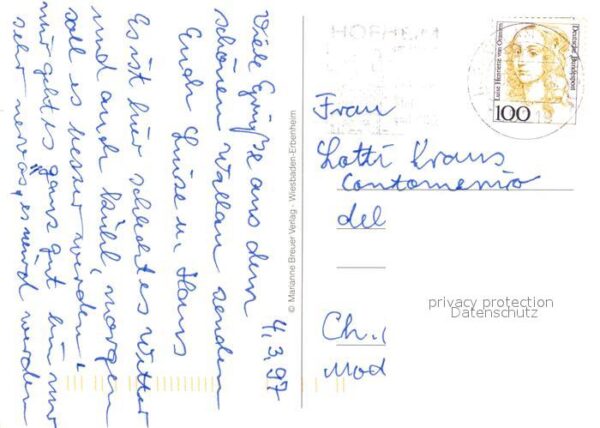 4.3.97
Viele Grüße aus dem
schönen Wallau senden
Euch Luise u. Hans
Es ist hier schlechtes Wetter
und auch kühl, morgen
soll es besser werden,
mir geht es ganz gut bin nur
sehr nervös, es wird werden
© Marianne Breuer Verlag · Wiesbaden-Erbenheim
HOFHEIM
Deutsche Bundespost
Luise Henriette von Oranien
100
Frau
Lotti Kraus
Contomenico
del
Ch.
Mod
privacy protection
Datenschutz